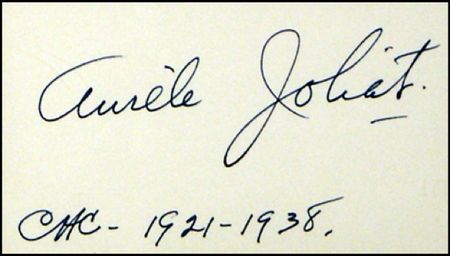 Aurèle Joliat.
CHC - 1921-1938.